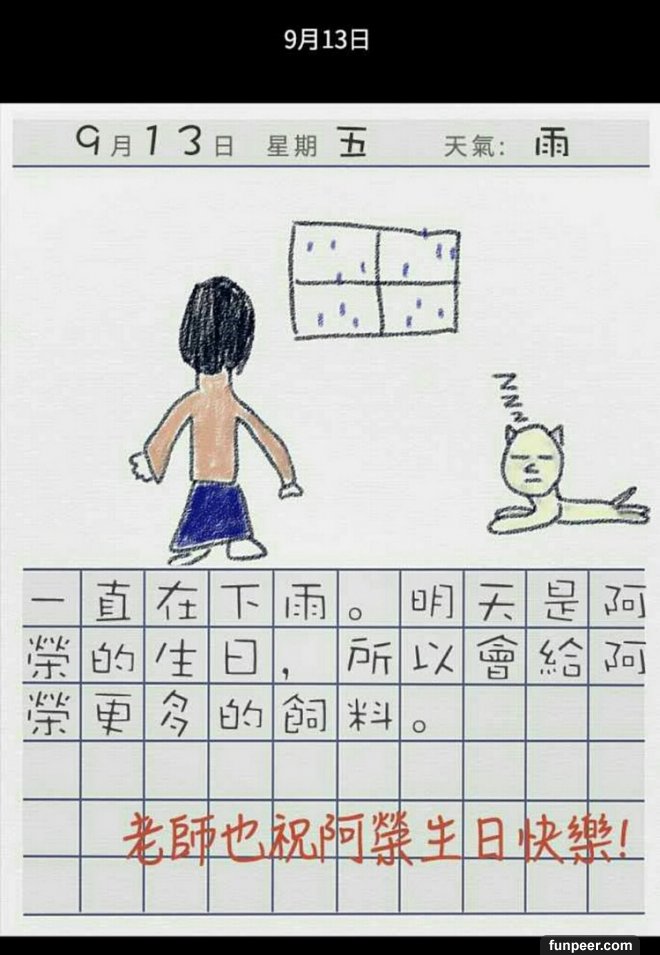 9月13日
9月13日 星期五 天氣: 雨
ZZZZ
一直在下雨。明天是阿
榮的生日，所以會給阿
榮更多的飼料。
老師也祝阿榮生日快樂!
funpeer.com